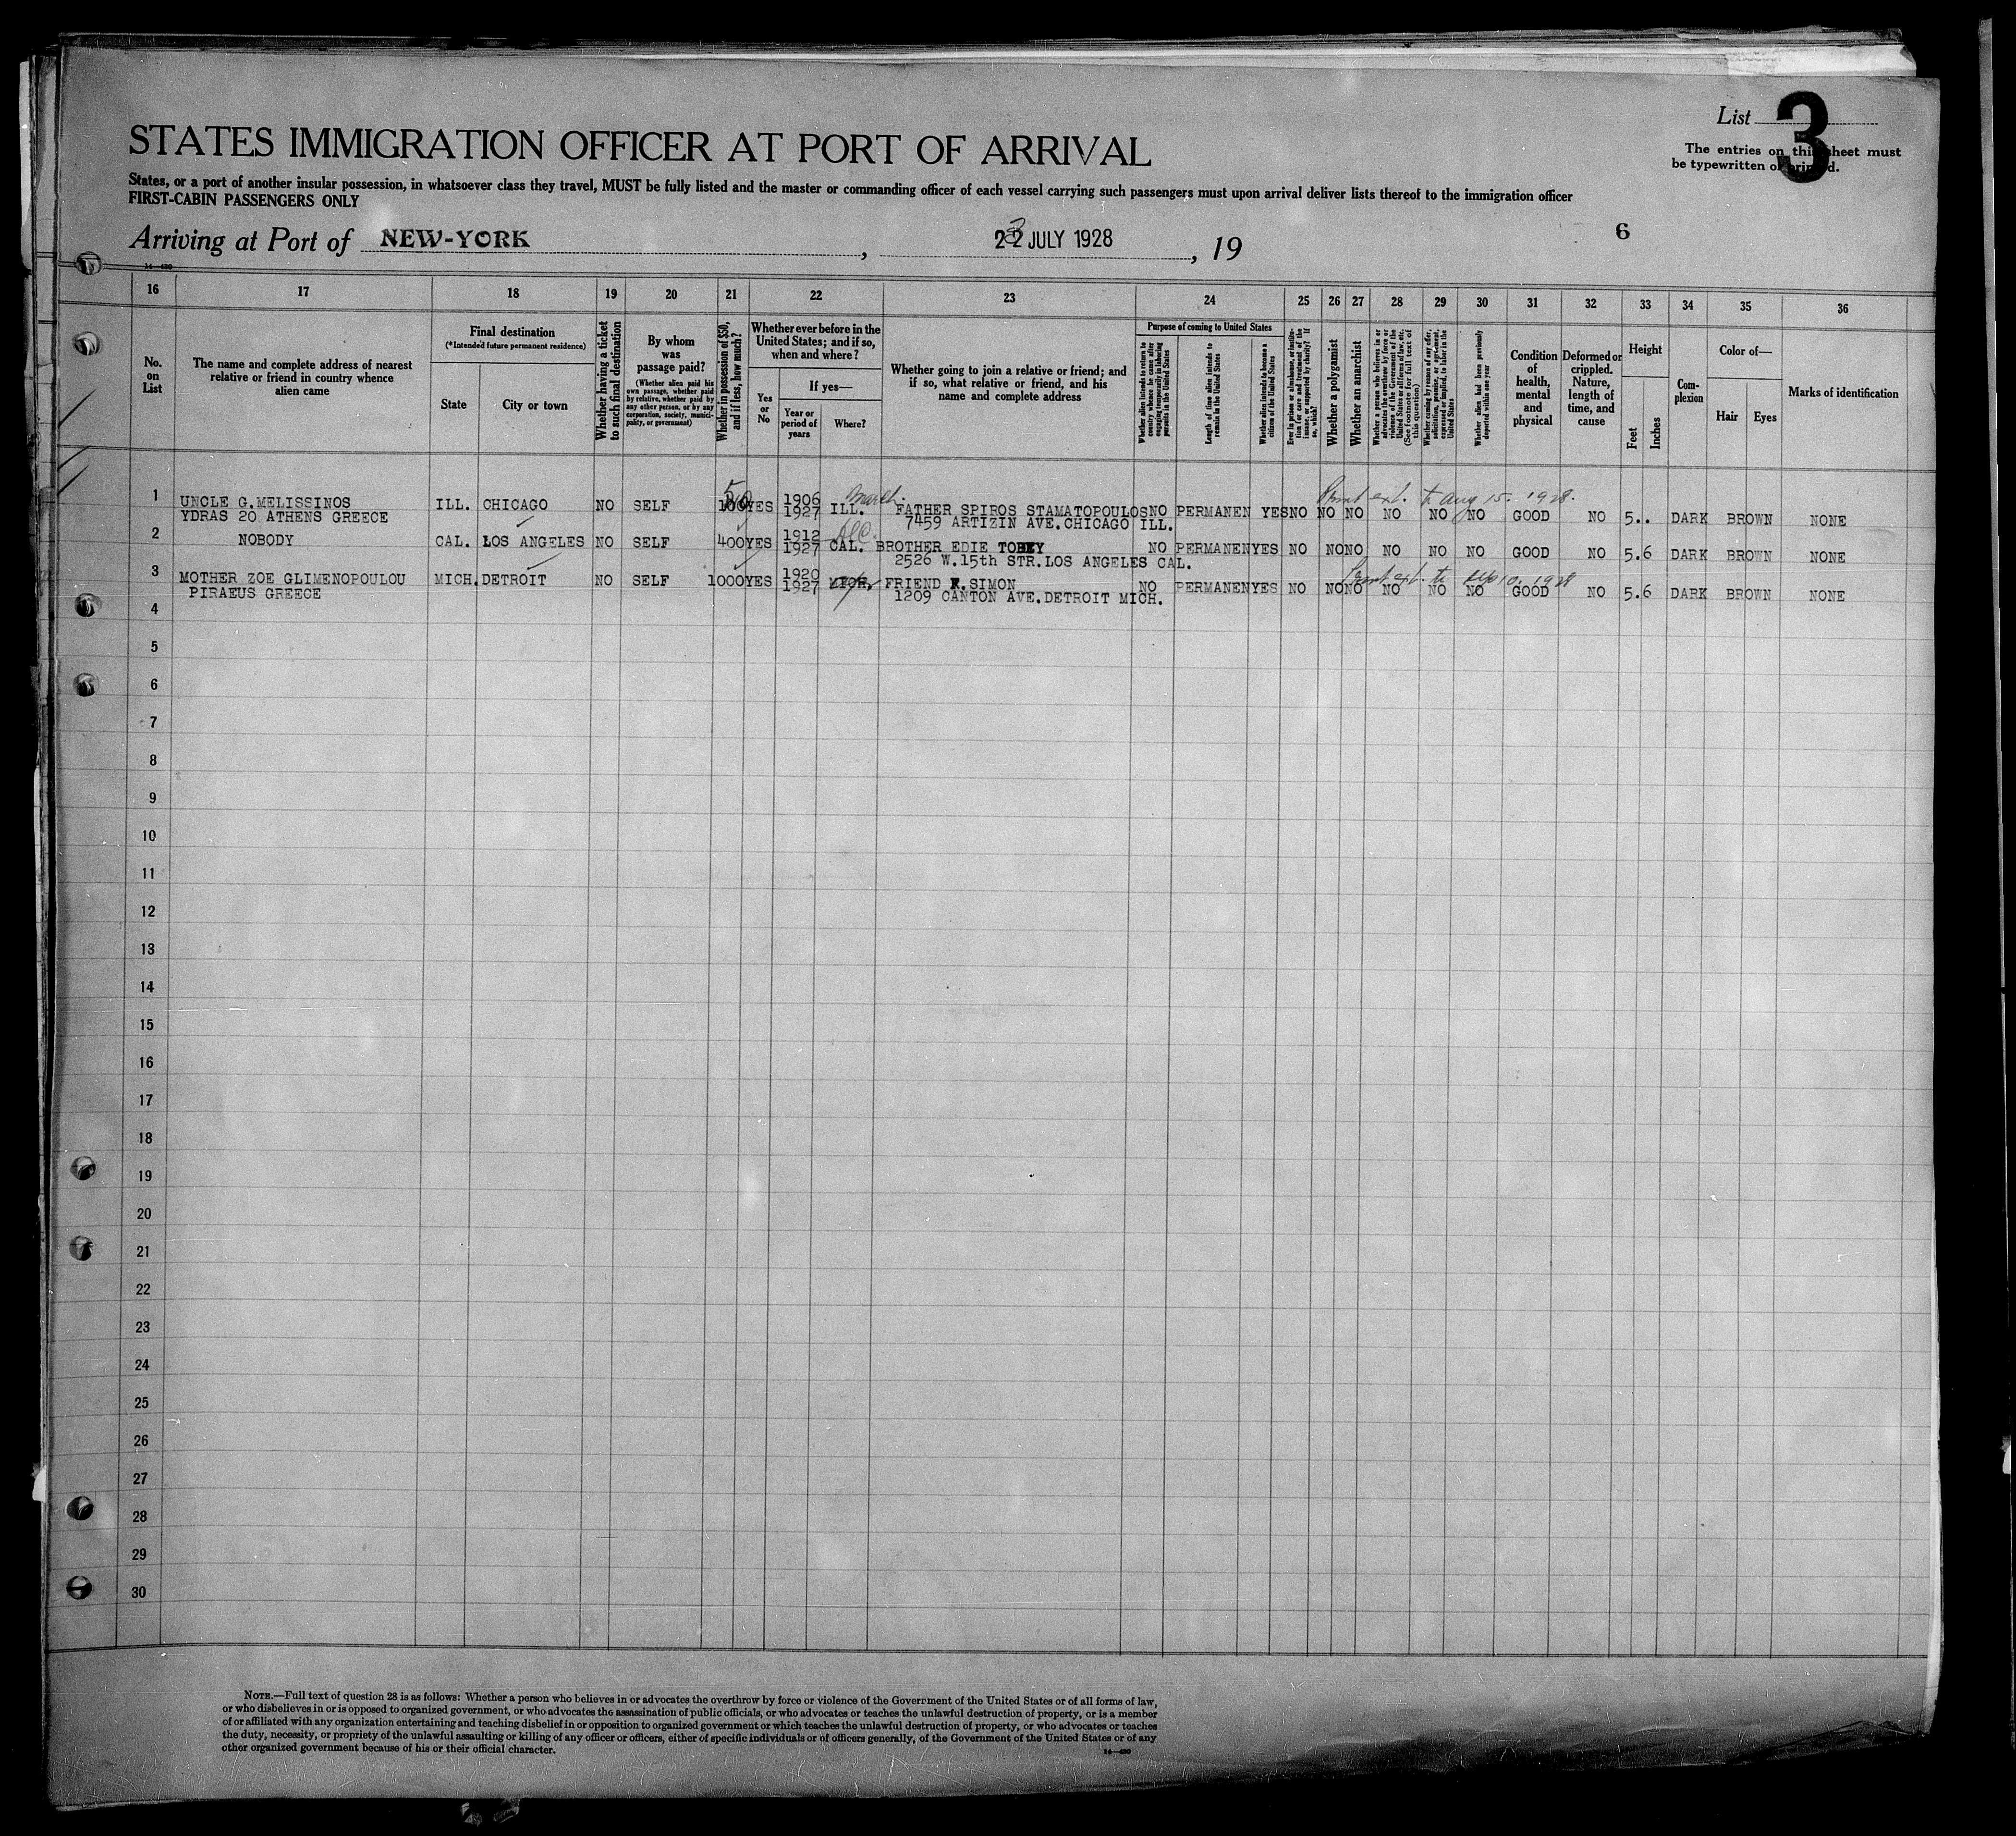 List 3
STATES IMMIGRATION OFFICER AT PORT OF ARRIVAL
The entries on this sheet must
be typewritten or printed.
States, or a port of another insular possession, in whatsoever class they travel, MUST be fully listed and the master or commanding officer of each vessel carrying such passengers must upon arrival deliver lists thereof to the immigration officer
FIRST-CABIN PASSENGERS ONLY
Arriving at Port of NEW-YORK, 22 JULY 1928, 19
6
3
14—430
16 17 18 19 20 21 22 23 24 25 26 27 28 29 30 31 32 33 34 35 36
No.
on
List
The name and complete address of nearest
relative or friend in country whence
alien came
Final destination
(*Intended future permanent residence)
State
City or town
Whether having a ticket
to such final destination
By whom
was
passage paid?
(Whether alien paid his
own passage, whether paid
by relative, whether paid by
any other person, or by any
corporation, society, munici-
pality, or government)
Whether in possession of $50,
and if less, how much?
Whether ever before in the
United States; and if so,
when and where?
Yes
or
No
If yes—
Year or
period of
years
Where?
Whether going to join a relative or friend; and
if so, what relative or friend, and his
name and complete address
Purpose of coming to United States
Whether alien intends to return to
country whence he came after
engaging temporarily in laboring
pursuits in the United States
Length of time alien intends to
remain in the United States
Whether alien intends to become a
citizen of the United States
Ever in prison or almshouse, or institu-
tion for care and treatment of the
insane, or supported by charity? If
so, which?
Whether a polygamist
Whether an anarchist
Whether a person who believes in or
advocates the overthrow by force or
violence of the Government of the
United States or all forms of law, etc.
(See footnote for full text of
this question)
Whether coming by reason of any offer,
solicitation, promise, or agreement,
expressed or implied, to labor in the
United States
Whether alien had been previously
deported within one year
Condition
of
health,
mental
and
physical
Deformed or
crippled.
Nature,
length of
time, and
cause
Height
Feet
Inches
Com-
plexion
Color of—
Hair
Eyes
Marks of identification
March
Permit ext. to Aug 15. 1928.
1 UNCLE G.MELISSINOS ILL. CHICAGO NO SELF 100 YES 1906 1927 ILL. FATHER SPIROS STAMATOPOULOS NO PERMANEN YES NO NO NO NO NO NO GOOD NO 5.. DARK BROWN NONE
YDRAS 20 ATHENS GREECE 7459 ARTIZIN AVE.CHICAGO ILL.
2 NOBODY CAL. LOS ANGELES NO SELF 400 YES 1912 1927 CAL. BROTHER EDIE TOBEY NO PERMANEN YES NO NO NO NO NO NO GOOD NO 5.6 DARK BROWN NONE
2526 W.15th STR.LOS ANGELES CAL.
Permit ext. to Sep 10. 1928
3 MOTHER ZOE GLIMENOPOULOU MICH. DETROIT NO SELF 1000 YES 1920 1927 MICH. FRIEND F.SIMON NO PERMANEN YES NO NO NO NO NO NO GOOD NO 5.6 DARK BROWN NONE
PIRAEUS GREECE 1209 CANTON AVE.DETROIT MICH.
4
5
6
7
8
9
10
11
12
13
14
15
16
17
18
19
20
21
22
23
24
25
26
27
28
29
30
NOTE.—Full text of question 28 is as follows: Whether a person who believes in or advocates the overthrow by force or violence of the Government of the United States or of all forms of law,
or who disbelieves in or is opposed to organized government, or who advocates the assassination of public officials, or who advocates or teaches the unlawful destruction of property, or is a member
of or affiliated with any organization entertaining and teaching disbelief in or opposition to organized government or which teaches the unlawful destruction of property, or who advocates or teaches
the duty, necessity, or propriety of the unlawful assaulting or killing of any officer or officers, either of specific individuals or of officers generally, of the Government of the United States or of any
other organized government because of his or their official character.
14—430